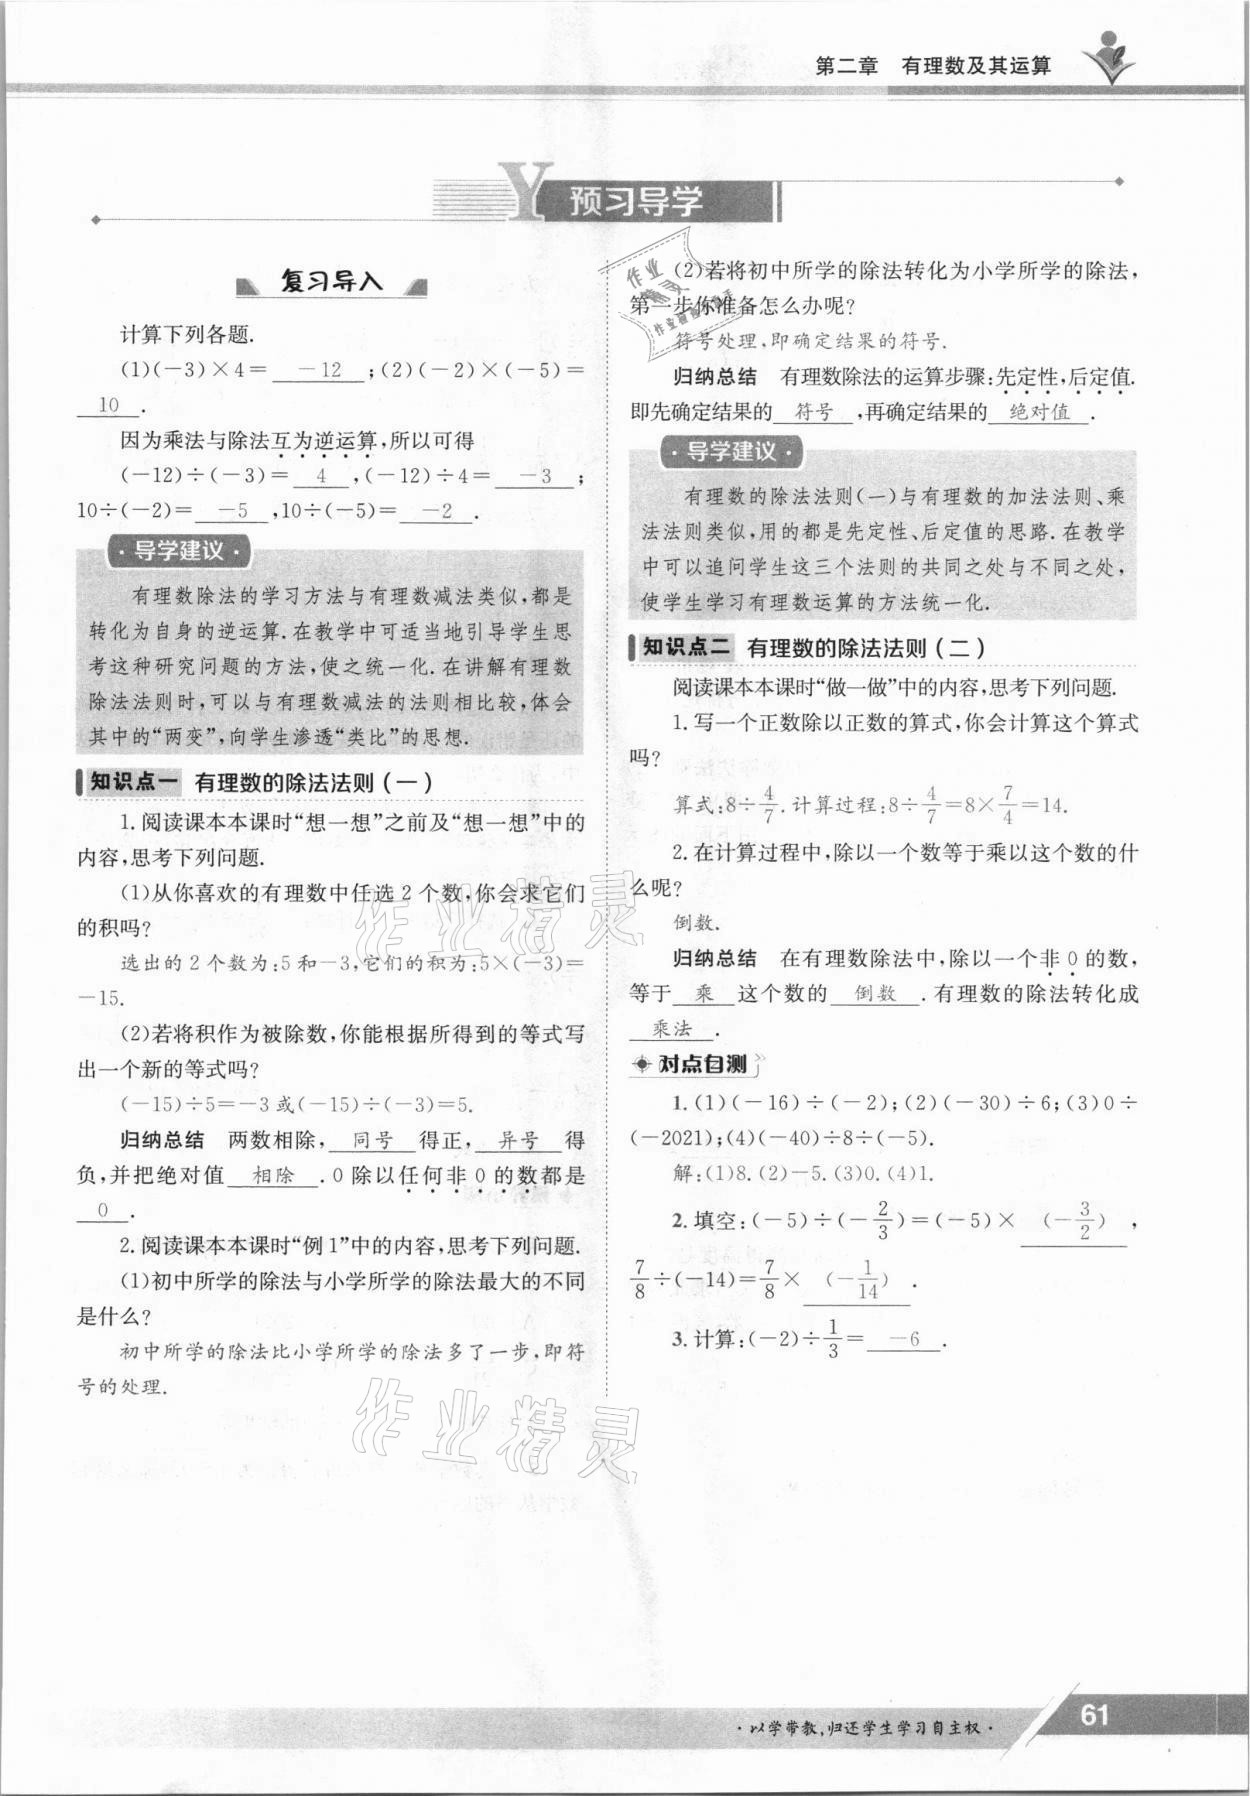 第二章 有理数及其运算
Y 预习导学
复习导入
计算下列各题.
(1)(-3)×4= -12 ;(2)(-2)×(-5)=
10 .
因为乘法与除法互为逆运算,所以可得
(-12)÷(-3)= 4 ,(-12)÷4= -3 ;
10÷(-2)= -5 ,10÷(-5)= -2 .
·导学建议·
有理数除法的学习方法与有理数减法类似,都是
转化为自身的逆运算.在教学中可适当地引导学生思
考这种研究问题的方法,使之统一化.在讲解有理数
除法法则时,可以与有理数减法的法则相比较,体会
其中的“两变”,向学生渗透“类比”的思想.
知识点一 有理数的除法法则(一)
1.阅读课本本课时“想一想”之前及“想一想”中的
内容,思考下列问题.
(1)从你喜欢的有理数中任选2个数,你会求它们
的积吗?
选出的2个数为:5和-3,它们的积为:5×(-3)=
-15.
(2)若将积作为被除数,你能根据所得到的等式写
出一个新的等式吗?
(-15)÷5=-3或(-15)÷(-3)=5.
归纳总结 两数相除, 同号 得正, 异号 得
负,并把绝对值 相除 .0除以任何非0的数都是
0 .
2.阅读课本本课时“例1”中的内容,思考下列问题.
(1)初中所学的除法与小学所学的除法最大的不同
是什么?
初中所学的除法比小学所学的除法多了一步,即符
号的处理.
(2)若将初中所学的除法转化为小学所学的除法,
第一步你准备怎么办呢?
符号处理,即确定结果的符号.
归纳总结 有理数除法的运算步骤:先定性,后定值.
即先确定结果的 符号 ,再确定结果的 绝对值 .
·导学建议·
有理数的除法法则(一)与有理数的加法法则、乘
法法则类似,用的都是先定性、后定值的思路.在教学
中可以追问学生这三个法则的共同之处与不同之处,
使学生学习有理数运算的方法统一化.
知识点二 有理数的除法法则(二)
阅读课本本课时“做一做”中的内容,思考下列问题.
1.写一个正数除以正数的算式,你会计算这个算式
吗?
算式:8÷4/7.计算过程:8÷4/7=8×7/4=14.
2.在计算过程中,除以一个数等于乘以这个数的什
么呢?
倒数.
归纳总结 在有理数除法中,除以一个非0的数,
等于 乘 这个数的 倒数 .有理数的除法转化成
乘法 .
对点自测
1.(1)(-16)÷(-2);(2)(-30)÷6;(3)0÷
(-2021);(4)(-40)÷8÷(-5).
解:(1)8.(2)-5.(3)0.(4)1.
2.填空:(-5)÷(-2/3)=(-5)× (-3/2) ,
7/8÷(-14)=7/8× (-1/14) .
3.计算:(-2)÷1/3= -6 .
作业精灵
作业精灵
·以学带教,归还学生学习自主权·
61